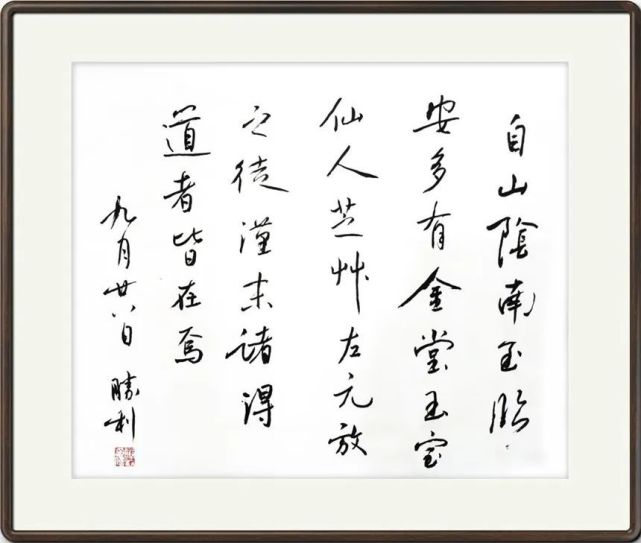 自山陰南至臨
安多有金堂玉室
仙人芝艸左元放
之徒漢末諸得
道者皆在焉
九月廿八日 勝利